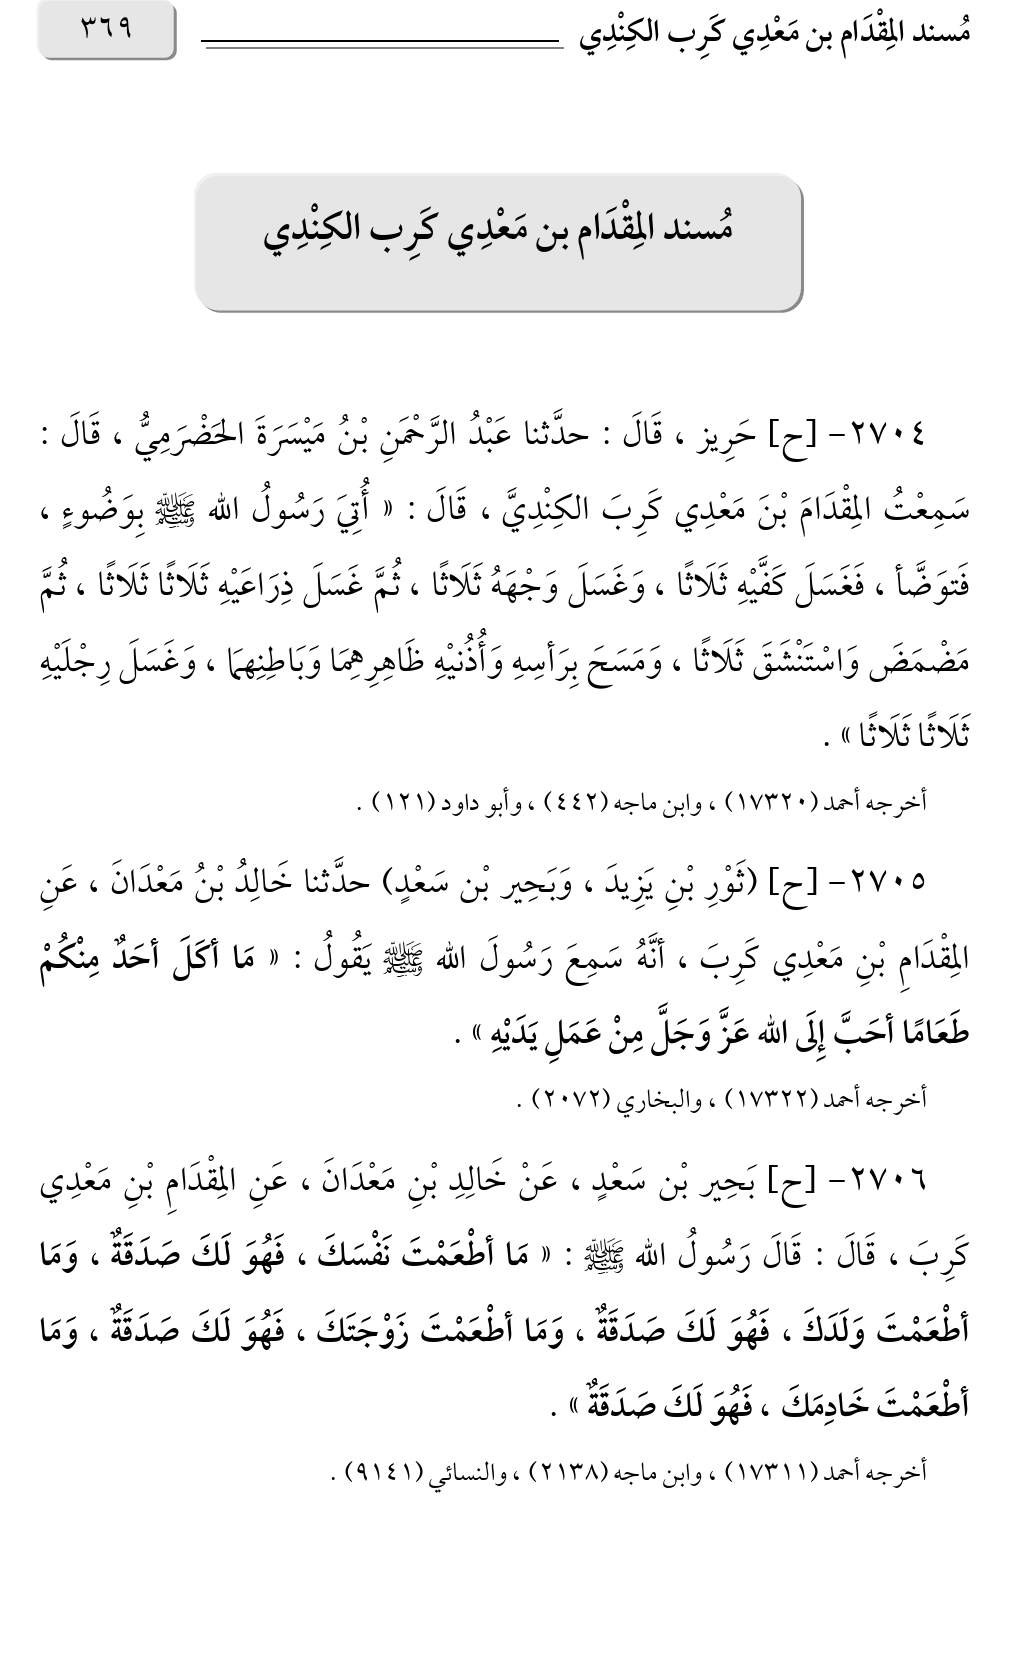 مُسند المِقْدَام بن مَعْدِي كَرِب الكِنْدِي
٣٦٩
مُسند المِقْدَام بن مَعْدِي كَرِب الكِنْدِي
٢٧٠٤- [ح] حَرِيز ، قَالَ : حدَّثنا عَبْدُ الرَّحْمَنِ بْنُ مَيْسَرَةَ الحَضْرَمِيُّ ، قَالَ :
سَمِعْتُ المِقْدَامَ بْنَ مَعْدِي كَرِبَ الكِنْدِيَّ ، قَالَ : « أُتِيَ رَسُولُ الله ﷺ بِوَضُوءٍ ،
فَتوَضَّأ ، فَغَسَلَ كَفَّيْهِ ثَلَاثًا ، وَغَسَلَ وَجْهَهُ ثَلَاثًا ، ثُمَّ غَسَلَ ذِرَاعَيْهِ ثَلَاثًا ثَلَاثًا ، ثُمَّ
مَضْمَضَ وَاسْتَنْشَقَ ثَلَاثًا ، وَمَسَحَ بِرَأسِهِ وَأُذُنيْهِ ظَاهِرِهِمَا وَبَاطِنِهِمَا ، وَغَسَلَ رِجْلَيْهِ
ثَلَاثًا ثَلَاثًا » .
أخرجه أحمد (١٧٣٢٠) ، وابن ماجه (٤٤٢) ، وأبو داود (١٢١) .
٢٧٠٥- [ح] (ثَوْرِ بْنِ يَزِيدَ ، وَبَحِير بْن سَعْدٍ) حدَّثنا خَالِدُ بْنُ مَعْدَانَ ، عَنِ
المِقْدَامِ بْنِ مَعْدِي كَرِبَ ، أنَّهُ سَمِعَ رَسُولَ الله ﷺ يَقُولُ : « مَا أكَلَ أحَدٌ مِنْكُمْ
طَعَامًا أحَبَّ إِلَى الله عَزَّ وَجَلَّ مِنْ عَمَلِ يَدَيْهِ » .
أخرجه أحمد (١٧٣٢٢) ، والبخاري (٢٠٧٢) .
٢٧٠٦- [ح] بَحِير بْن سَعْدٍ ، عَنْ خَالِدِ بْنِ مَعْدَانَ ، عَنِ المِقْدَامِ بْنِ مَعْدِي
كَرِبَ ، قَالَ : قَالَ رَسُولُ الله ﷺ : « مَا أطْعَمْتَ نَفْسَكَ ، فَهُوَ لَكَ صَدَقَةٌ ، وَمَا
أطْعَمْتَ وَلَدَكَ ، فَهُوَ لَكَ صَدَقَةٌ ، وَمَا أطْعَمْتَ زَوْجَتَكَ ، فَهُوَ لَكَ صَدَقَةٌ ، وَمَا
أطْعَمْتَ خَادِمَكَ ، فَهُوَ لَكَ صَدَقَةٌ » .
أخرجه أحمد (١٧٣١١) ، وابن ماجه (٢١٣٨) ، والنسائي (٩١٤١) .